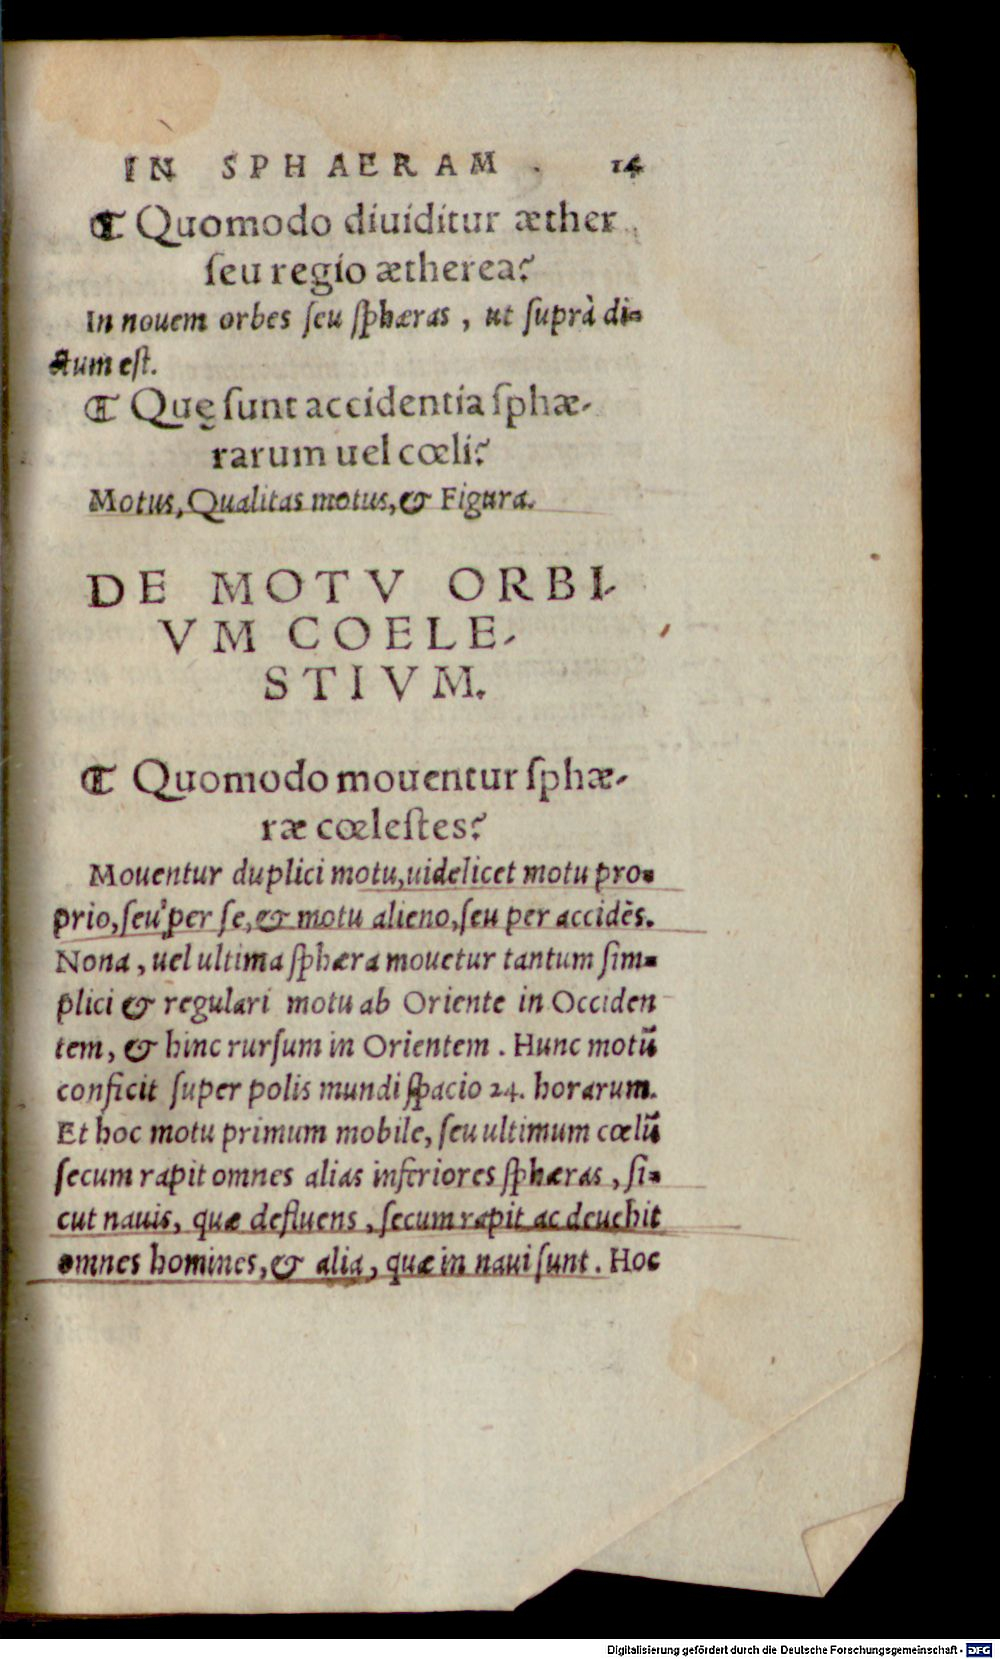 IN SPHAERAM. 14
☾ Quomodo diuiditur æther
ſeu regio ætherea?
In nouem orbes ſeu ſphæras, ut ſuprà di-
ctum eſt.
☾ Quę ſunt accidentia ſphæ-
rarum uel cœli?
Motus, Qualitas motus, & Figura.
DE MOTV ORBI-
VM COELE-
STIVM.
☾ Quomodo mouentur ſphæ-
ræ cœleſtes?
Mouentur duplici motu, uidelicet motu pro-
prio, ſeu per ſe, & motu alieno, ſeu per accidẽs.
Nona, uel ultima ſphæra mouetur tantum ſim-
plici & regulari motu ab Oriente in Occiden
tem, & hinc rurſum in Orientem. Hunc motũ
conficit ſuper polis mundi ſpacio 24. horarum.
Et hoc motu primum mobile, ſeu ultimum cœlũ
ſecum rapit omnes alias inferiores ſphæras, ſi-
cut nauis, quæ defluens, ſecum rapit ac deuehit
omnes homines, & alia, quæ in naui ſunt. Hoc
Digitalisierung gefördert durch die Deutsche Forschungsgemeinschaft - DFG